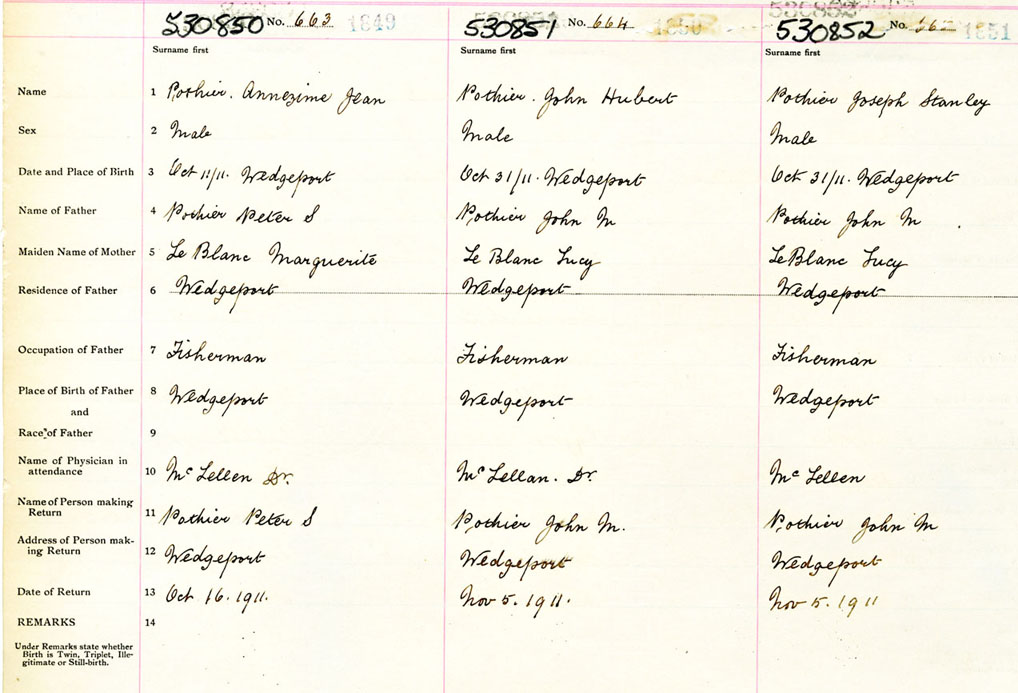 530850 No. 663 1849 530851 No. 664 1850 530852 No. 1851
Surname first Surname first Surname first
Name 1 Pothier. Annezime Jean Pothier. John Hubert Pothier Joseph Stanley
Sex 2 Male Male Male
Date and Place of Birth 3 Oct 11/11. Wedgeport Oct 31/11. Wedgeport Oct 31/11. Wedgeport
Name of Father 4 Pothier Peter S Pothier John M Pothier John M
Maiden Name of Mother 5 Le Blanc Marguerite Le Blanc Lucy LeBlanc Lucy
Residence of Father 6 Wedgeport Wedgeport Wedgeport
Occupation of Father 7 Fisherman Fisherman Fisherman
Place of Birth of Father 8 Wedgeport Wedgeport Wedgeport
and
Race of Father 9
Name of Physician in
attendance 10 Mc Lellen Dr. Mc Lellan. Dr. Mc Lellen
Name of Person making
Return 11 Pothier Peter S Pothier John M. Pothier John M
Address of Person mak-
ing Return 12 Wedgeport Wedgeport Wedgeport
Date of Return 13 Oct 16. 1911. Nov 5. 1911. Nov 5. 1911
REMARKS 14
Under Remarks state whether
Birth is Twin, Triplet, Ille-
gitimate or Still-birth.